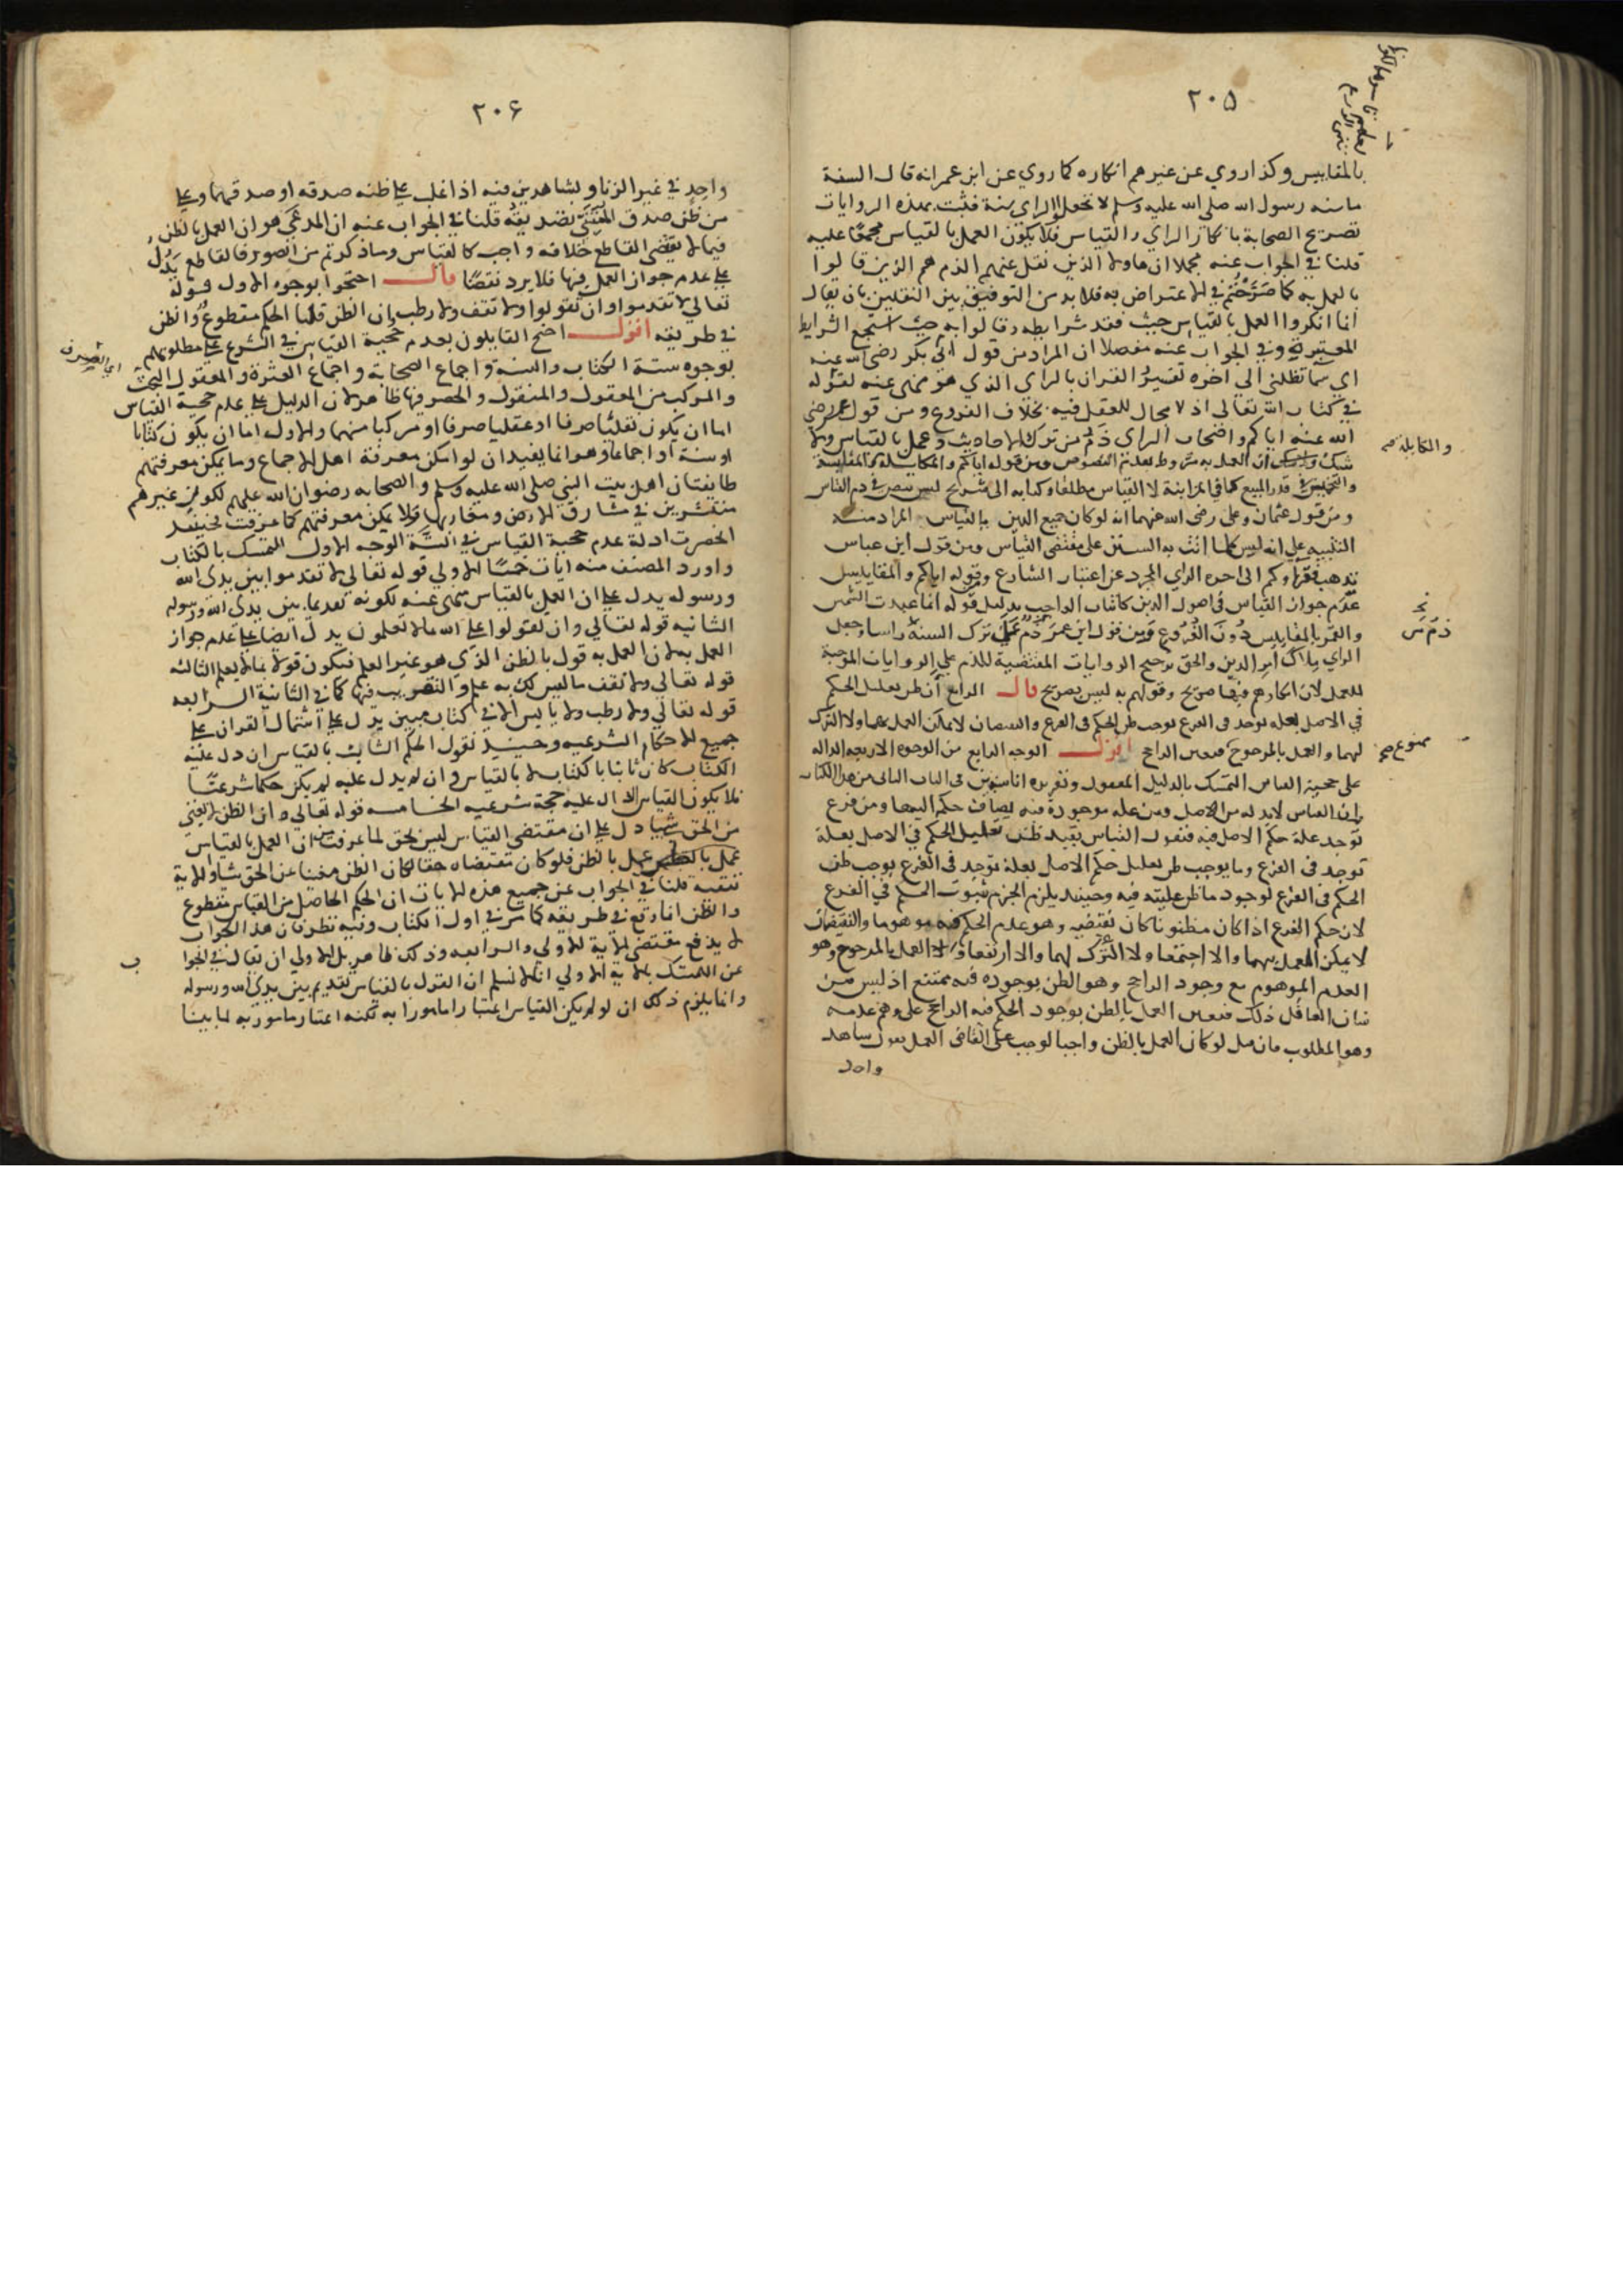 ٢٠٥
بالمقاييس وكذا روي عن غيرهم انكاره كما روي عن ابن عمر انه قال السنة
ما سنه رسول الله صلى الله عليه وسلم لا تجعلوا الراي سنة فثبت بهذه الروايات
تصريح الصحابة بانكار الراي والقياس فلا يكون العمل بالقياس مجمعا عليه
قلنا في الجواب عنه مجملا ان هاولا الذين نقل عنهم الذم هم الذين قالوا
بالعمل به كما صرحتم في الاعتراض به فلا بد من التوفيق بين النقلين بان يقال
انما انكروا العمل بالقياس حيث فقد شرايطه وقالوا به حيث استجمع الشرايط
المعتبرة وفي الجواب عنه مفصلا ان المراد من قول ابي بكر رضي الله عنه
اي سما تظلني الى اخره تفسير القران بالراي الذي هو منهى عنه لقوله
في كتاب الله تعالى اذ لا مجال للعقل فيه بخلاف الفروع ومن قول عمر رضي
الله عنه اياكم واصحاب الراي ذم من ترك الاحاديث وعمل بالقياس ولا
شك ان العمل به مشروط بعدم النصوص ومن قوله اياكم والمكايلة المقايسة
والكايلة صح
في قدر المبيع كما في المزابنة لا القياس مطلقا وكتابه الى شريح ليس بنص في ذم القياس
ومن قول عثمان وعلي رضي الله عنهما انه لو كان جميع الدين بالقياس المراد منه
التنبيه على انه ليس كلما اتت به السنن على مقتضى القياس ومن قول ابن عباس
يذهب قراوكم الى اخره الراي المجرد عن اعتبار الشارع وقوله اياكم والمقاييس
عدم جواز القياس في اصول الدين كاثبات الواجب بدليل قوله انما عبدت الشمس
والقمر بالمقاييس دون الفروع ومن قول ابن عمر ذم من ترك السنة راسا وجعل
الراي ملاك امر الدين والحق ترجيح الروايات المقتضية للذم على الروايات الموجبة
للعمل لان انكارهم فيها صريح وقولهم به ليس بصريح قال الرابع ان ظن تعليل الحكم
في الاصل بعلة توجد في الفرع يوجب ظن الحكم في الفرع والنقيضان لا يمكن العمل بهما ولا الترك
لهما والعمل بالمرجوح فتعين الراجح اقول الوجه الرابع من الوجوه الاربعة الدالة
ممنوع صح
على حجية القياس التمسك بالدليل المعقول وتقريره انا سنبين في الباب الثاني من هذا الكتاب
ان القياس لابد له من الاصل ومن علة موجودة فيه يضاف حكم اليها ومن فرع
توجد علة حكم الاصل فيه فنقول القياس يفيد ظن تعليل الحكم في الاصل بعلة
توجد في الفرع وما يوجب ظن تعليل حكم الاصل بعلة توجد في الفرع يوجب ظن
الحكم في الفرع لوجود ما ظن عليته فيه وحينئذ يلزم الجزم ثبوت الحكم في الفرع
لان حكم الفرع اذا كان مظنونا كان نقيضه وهو عدم الحكم فيه موهوما والنقيضان
لا يمكن العمل بهما والا اجتمعا ولا الترك لهما والا ارتفعا ولا العمل بالمرجوح وهو
العدم الموهوم مع وجود الراجح وهو الظن بوجوده فيه ممتنع اذ ليس من
شان العاقل ذلك فتعين العمل بالظن بوجود الحكم فيه الراجح على وهم عدمه
وهو المطلوب فان قيل لو كان العمل بالظن واجبا لوجب على القاضي العمل بقول شاهد
واحد
٢٠۶
واحد في غير الزنا وبشاهدين فيه اذا غلب على ظنه صدقه او صدقهما وعلى
من ظن صدق المتنبي تصديقه قلنا في الجواب عنه ان المدعي هو ان العمل بالظن
فيما لا يقتضى القاطع خلافه واجب كالقياس وما ذكرتم من الصور فالقاطع يدل
على عدم جواز العمل فيها فلا يرد نقضا قال احتجوا بوجوه الاول قوله
تعالى لا تقدموا وان تقولوا ولا تقف ولا رطب ان الظن قلنا الحكم مقطوع والظن
في طريقه اقول احتج القايلون بعدم حجية القياس في الشرع على مطلوبهم
بوجوه ستة الكتاب والسنة واجماع الصحابة واجماع العترة والمعقول البحت
والمركب من المعقول والمنقول والحصر فيها ظاهر لان الدليل على عدم حجية القياس
اما ان يكون نقليا صرفا او عقليا صرفا او مركبا منهما والاول اما ان يكون كتابا
او سنة او اجماعا وهو انما يفيد ان لو امكن معرفة اهل الاجماع وما يمكن معرفتهم
طايفتان اهل بيت النبي صلى الله عليه وسلم والصحابه رضوان الله عليهم لكون غيرهم
منتشرين في مشارق الارض ومغاربها فلا يمكن معرفتهم كما عرفت فحينئذ
انحصرت ادلة عدم حجية القياس في الستة الوجه الاول التمسك بالكتاب
واورد المصنف منه ايات خمسا الاولى قوله تعالى لا تقدموا بين يدى الله
ورسوله يدل على ان العمل بالقياس منهى عنه لكونه تقديما بين يدى الله ورسوله
الثانيه قوله تعالى وان تقولوا على الله ما لا تعلمون يدل ايضا على عدم جواز
العمل به لان العمل به قول بالظن الذي هو غير العلم فيكون قولا بما لا يعلم الثالثه
قوله تعالى ولا تقف ما ليس لك به علم والتقريب فيها كما في الثانية الرابعه
قوله تعالى ولا رطب ولا يابس الا في كتاب مبين يدل على اشتمال القران على
جميع الاحكام الشرعيه وحينئذ نقول الحكم الثابت بالقياس ان دل عليه
الكتاب كان ثابتا بالكتاب لا بالقياس وان لم يدل عليه لم يكن حكما شرعيا
فلا يكون القياس الدال عليه حجة شرعيه الخامسه قوله تعالى وان الظن لا يغني
من الحق شيا دل على ان مقتضى القياس ليس بحق لما عرفت من ان العمل بالقياس
عمل بالظن فلو كان مقتضاه حقا لكان الظن مغنيا عن الحق شيا والاية
تنفيه قلنا في الجواب عن جميع هذه الايات ان الحكم الحاصل من القياس مقطوع
والظن انما وقع في طريقه كما مر في اول الكتاب وفيه نظر فان هذا الجواب
لا يدفع مقتضى الاية الاولى والرابعه وذلك ظاهر بل الاولى ان يقال في الجواب
عن التمسك بالاية الاولى انا لا نسلم ان القول بالقياس تقديم بين يدى الله ورسوله
وانما يلزم ذلك ان لو لم يكن القياس اعتبارا مامورا به لكنه اعتبار مامور به لما بينا